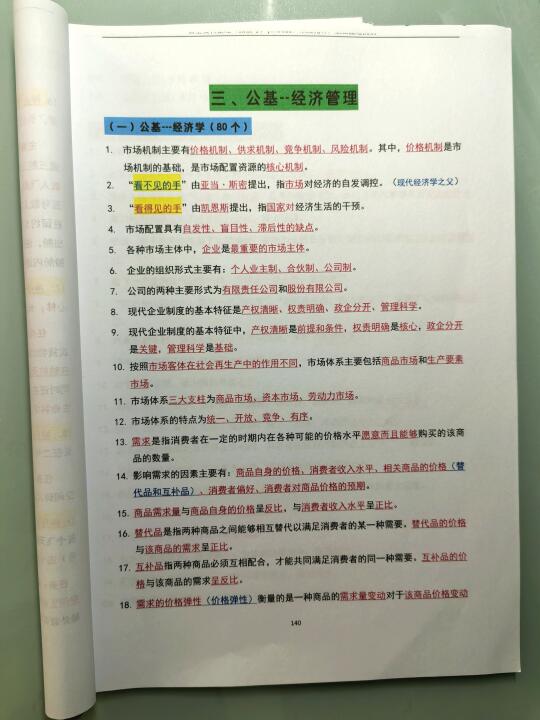 三、公基--经济管理
（一）公基---经济学（80个）
1. 市场机制主要有价格机制、供求机制、竞争机制、风险机制。其中，价格机制是市
场机制的基础，是市场配置资源的核心机制。
2. “看不见的手”由亚当·斯密提出，指市场对经济的自发调控。（现代经济学之父）
3. “看得见的手”由凯恩斯提出，指国家对经济生活的干预。
4. 市场配置具有自发性、盲目性、滞后性的缺点。
5. 各种市场主体中，企业是最重要的市场主体。
6. 企业的组织形式主要有：个人业主制、合伙制、公司制。
7. 公司的两种主要形式为有限责任公司和股份有限公司。
8. 现代企业制度的基本特征是产权清晰、权责明确、政企分开、管理科学。
9. 现代企业制度的基本特征中，产权清晰是前提和条件，权责明确是核心，政企分开
是关键，管理科学是基础。
10. 按照市场客体在社会再生产中的作用不同，市场体系主要包括商品市场和生产要素
市场。
11. 市场体系三大支柱为商品市场、资本市场、劳动力市场。
12. 市场体系的特点为统一、开放、竞争、有序。
13. 需求是指消费者在一定的时期内在各种可能的价格水平愿意而且能够购买的该商
品的数量。
14. 影响需求的因素主要有：商品自身的价格、消费者收入水平、相关商品的价格（替
代品和互补品）、消费者偏好、消费者对商品价格的预期。
15. 商品需求量与商品自身的价格呈反比，与消费者收入水平呈正比。
16. 替代品是指两种商品之间能够相互替代以满足消费者的某一种需要，替代品的价格
与该商品的需求呈正比。
17. 互补品指两种商品必须互相配合，才能共同满足消费者的同一种需要，互补品的价
格与该商品的需求呈反比。
18. 需求的价格弹性（价格弹性）衡量的是一种商品的需求量变动对于该商品价格变动
140